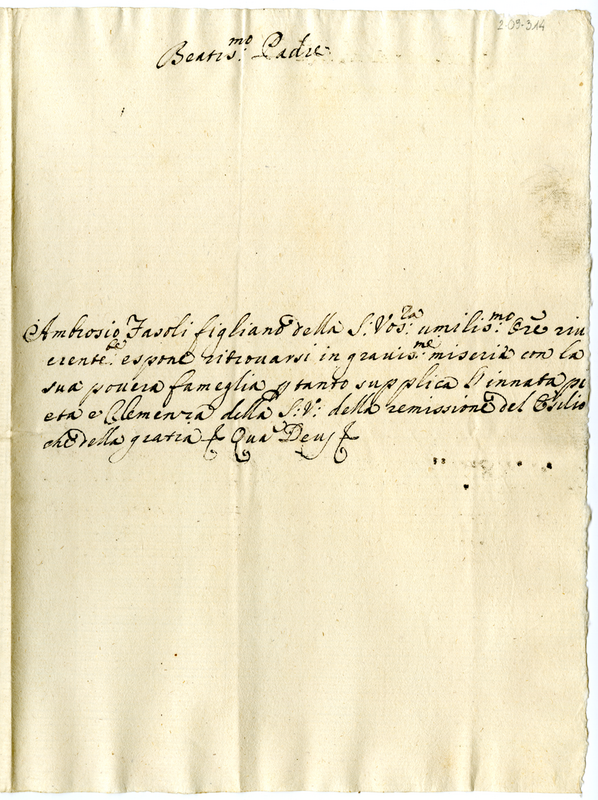 2-09-314
Beatis.mo Padre
Ambrosio Fasoli figliano della S. Vos.ra umilis.mo Ore riu
erente.te espone ritrouarsi in grauis.me miseria con la
sua pouera fameglia, ptanto supplica l'innata pi
età e Clemenza della S. V. della remissione del Esilio
che della gratia Qua Deus